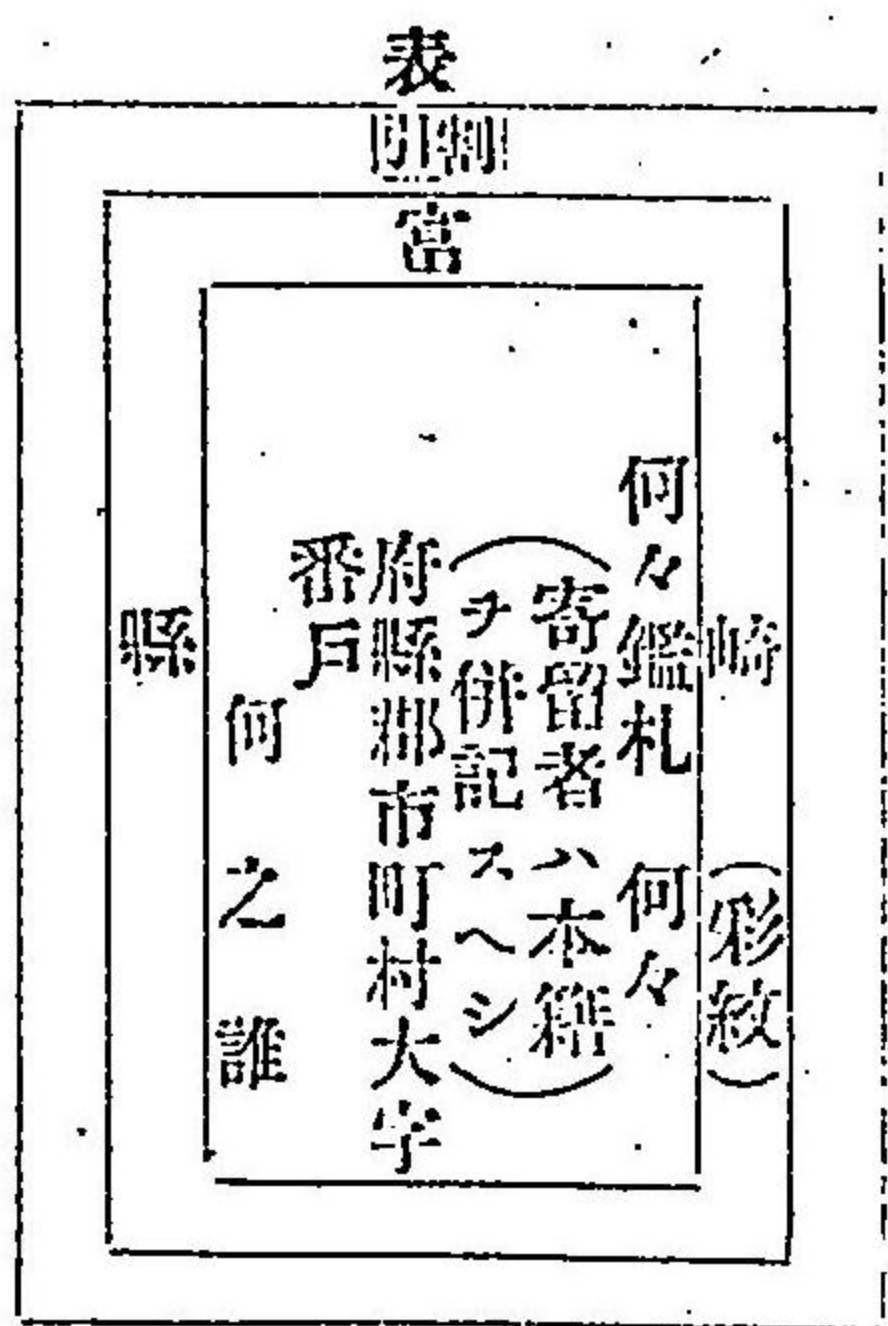 表
割印
宮
崎
(彩紋)
何々鑑札 何々
(寄留者ハ本籍
ヲ併記スヘシ)
府縣郡市町村大字
番戸
何之誰
縣